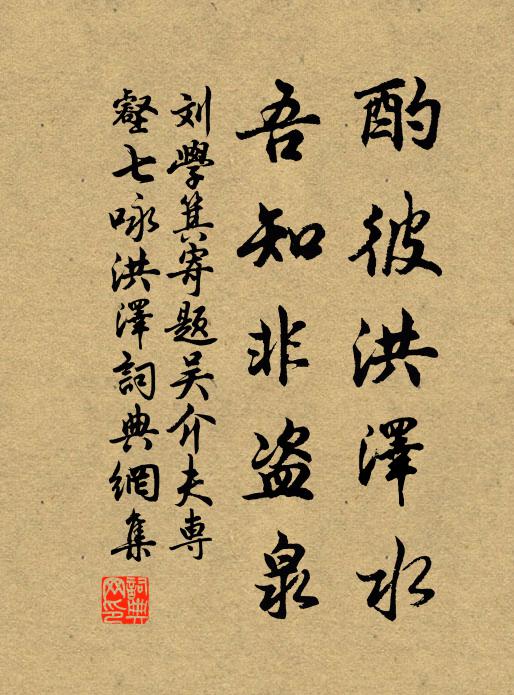 酌彼洪澤水
吾知非盗泉
刘學箕寄题吴介夫専
壑七咏洪澤詞典網集
詞典网印